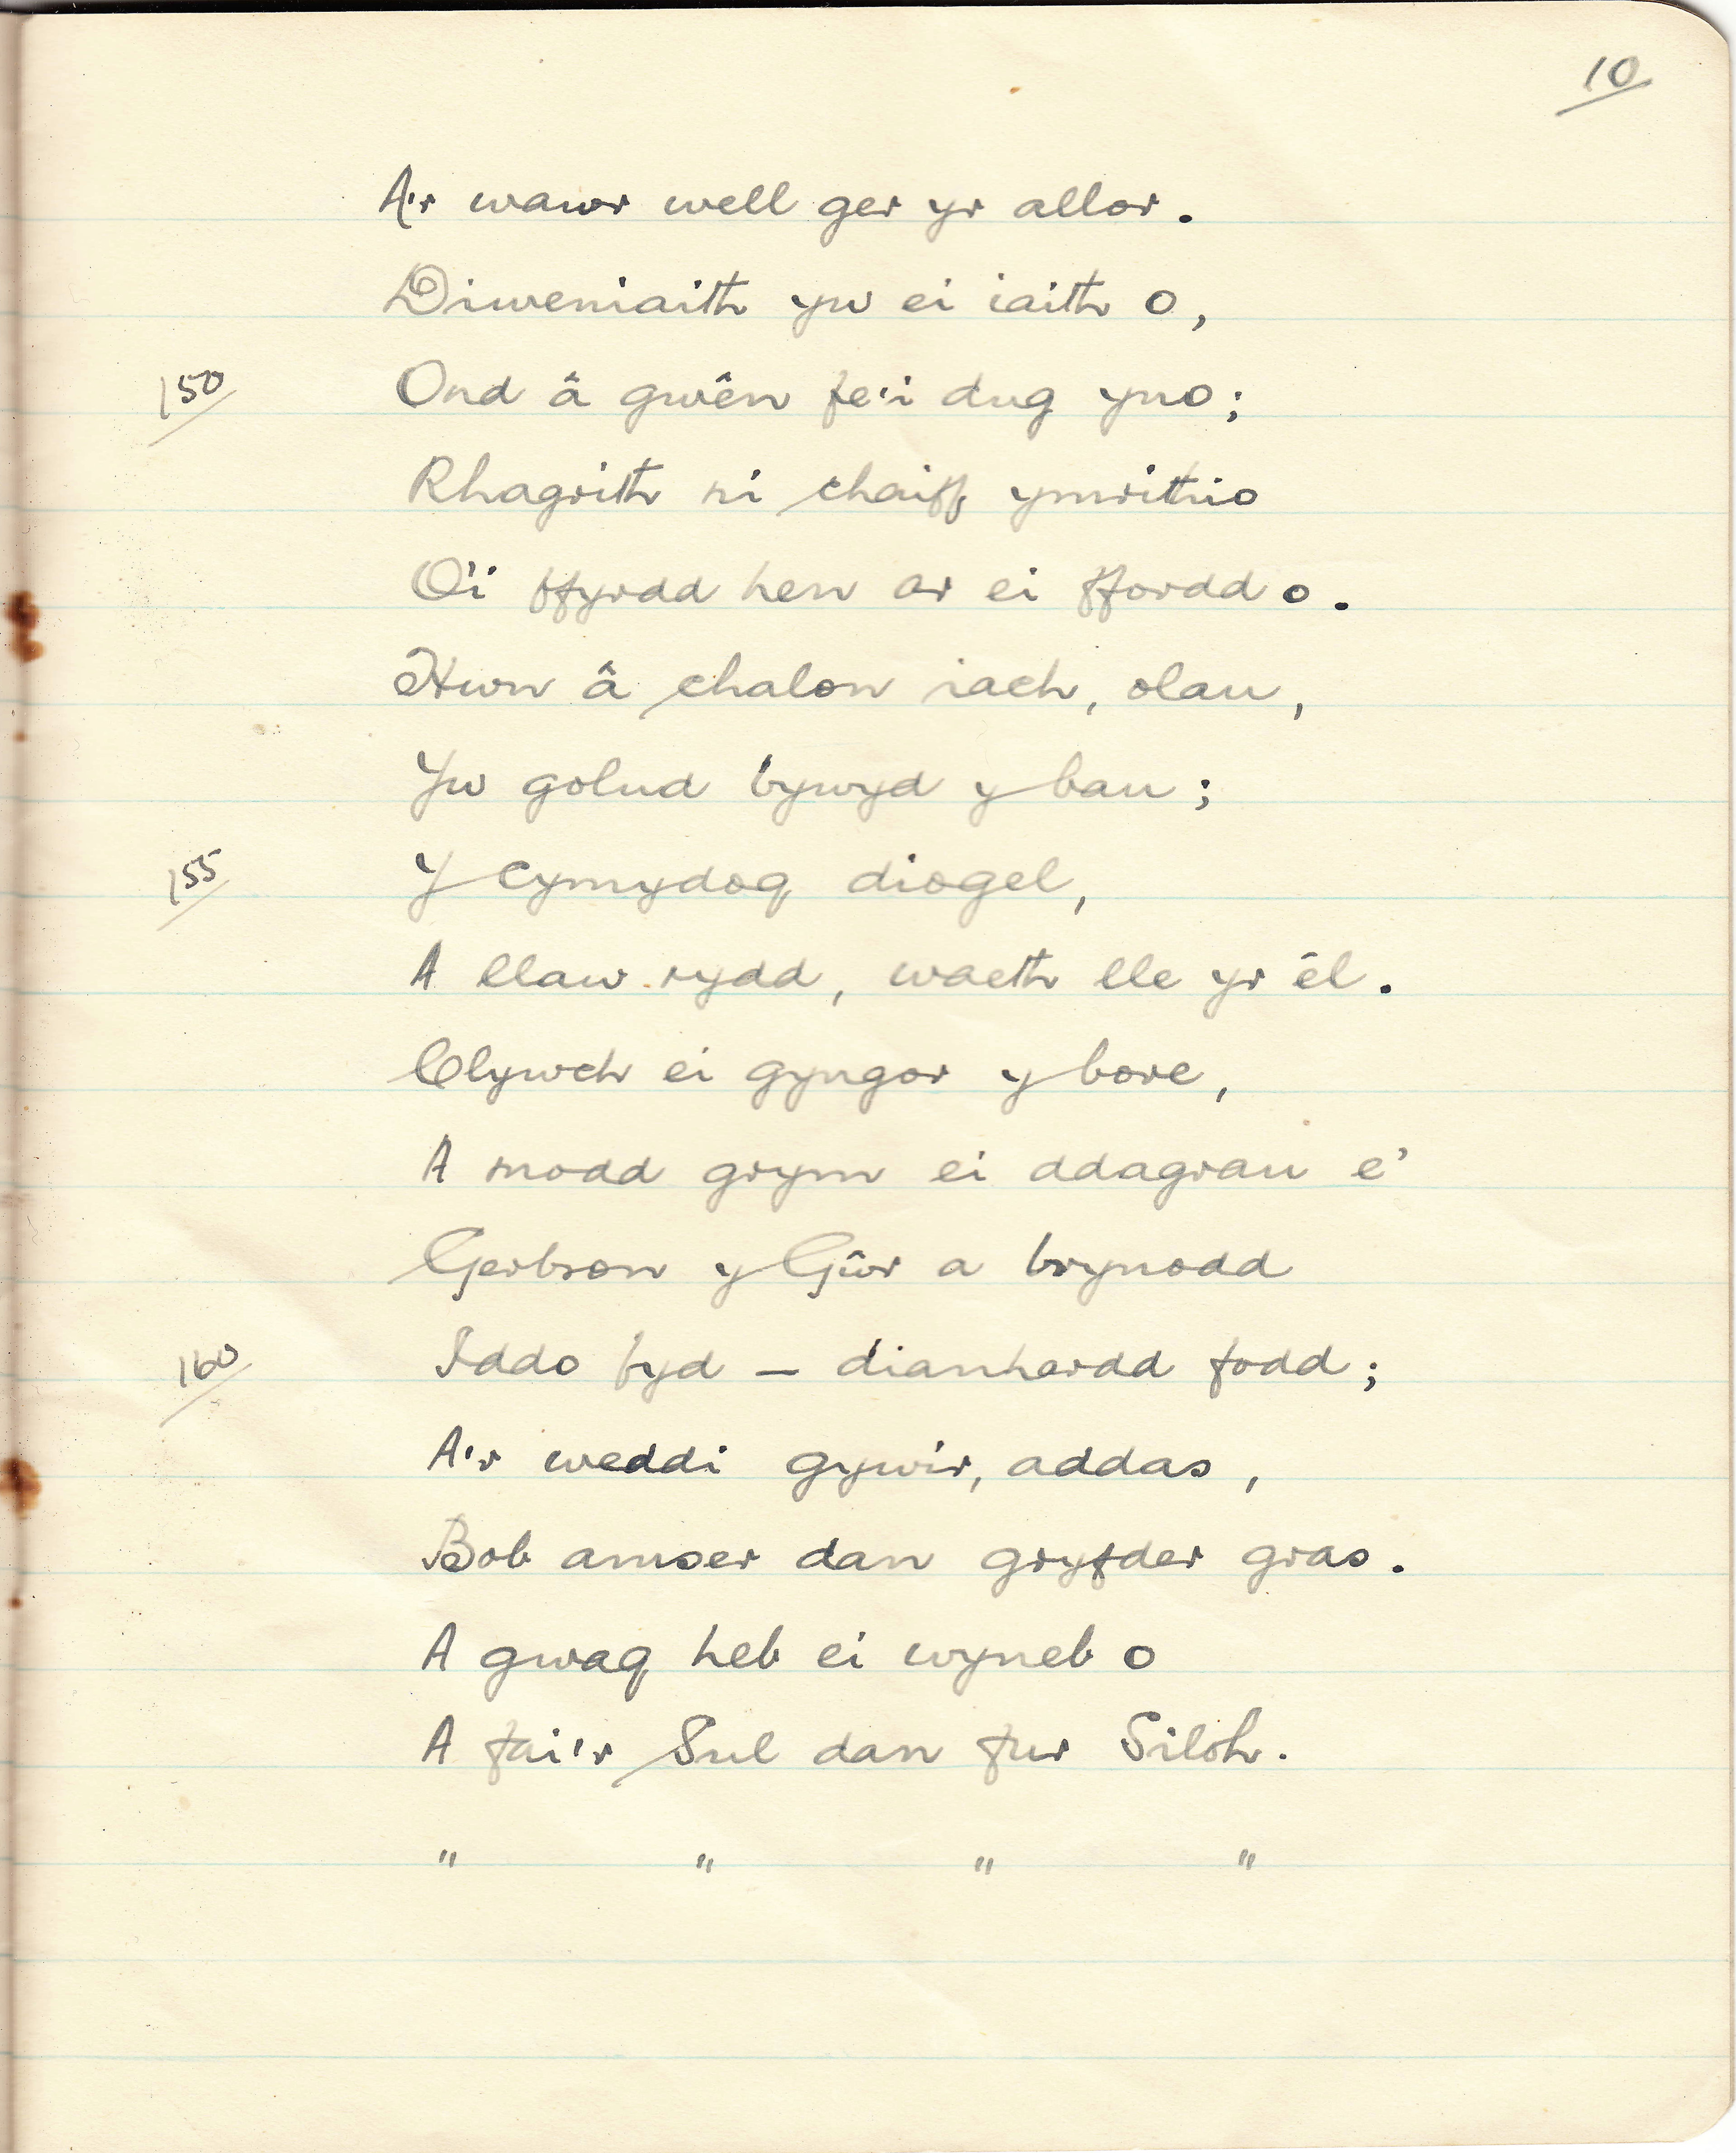 10
A'r wawr well ger yr allor.
Diweniaith yw ei iaith o,
150 Ond â gwên fe'i dug yno;
Rhagrith ni chaiff ymrithio
O'i ffyrdd hen ar ei ffordd o.
Hwn â chalon iach, olau,
Yw golud bywyd y bau;
155 Y cymydog diogel,
A llaw rydd, waeth lle yr êl.
Clywch ei gyngor y bore,
A modd grym ei ddagrau e'
Gerbron y Gŵr a brynodd
160 Iddo fyd — dianhardd fodd;
A'r weddi gywir, addas,
Bob amser dan gryfder gras.
A gwag heb ei wyneb o
A fai'r Sul dan fur Siloh.
" " " "